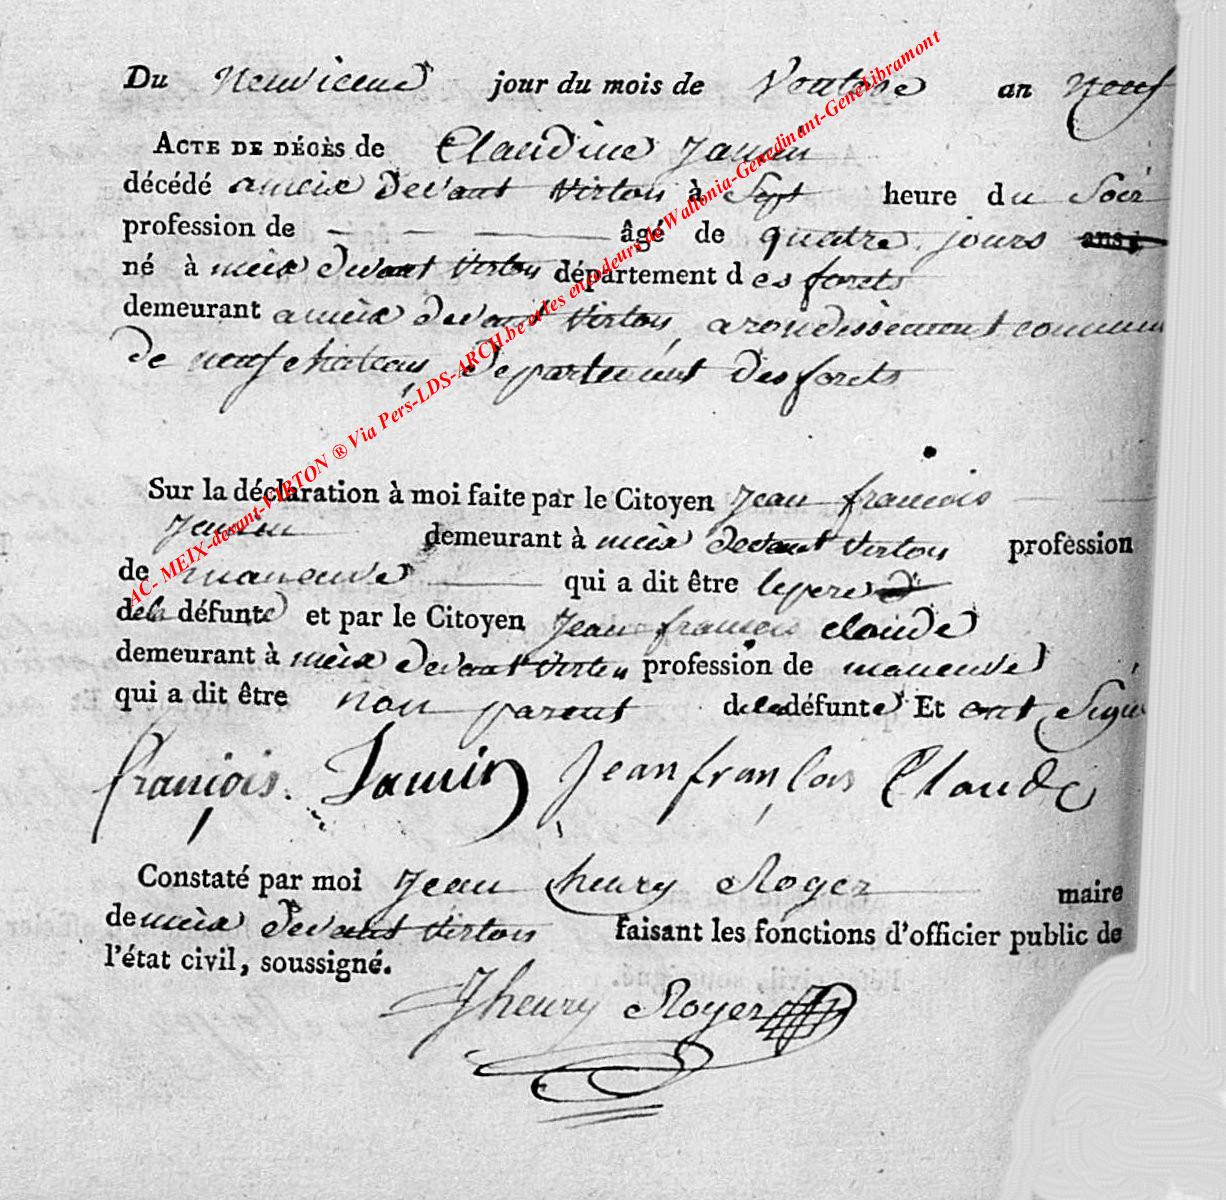 Du Neuvieme jour du mois de Ventose an Neuf
ACTE DE DÉCÈS de Claudine Jamin
décédé a meix devant virton à Sept heure du Soir
profession de — — — âgé de quatre jours ans,
né à meix devant virton département des forets
demeurant a meix devant virton, arondissement communal
de neufchateau, departement des forets
Sur la déclaration à moi faite par le Citoyen Jean françois
Jamin demeurant à meix devant virton profession
de maneuvre qui a dit être le pere
dela défunte et par le Citoyen Jean françois claude
demeurant à meix devant virton profession de maneuvre
qui a dit être non parent dela défunte Et ont Signé
françois. Jamin Jean françois Claude
Constaté par moi Jean henry Roger maire
de meix devant virton faisant les fonctions d'officier public de
l'état civil, soussigné.
J henry Roger
AC- MEIX-devant-VIRTON ® Via Pers-LDS-ARCH.be et les encodeurs de Wallonia-Genedinant-GeneLibramont